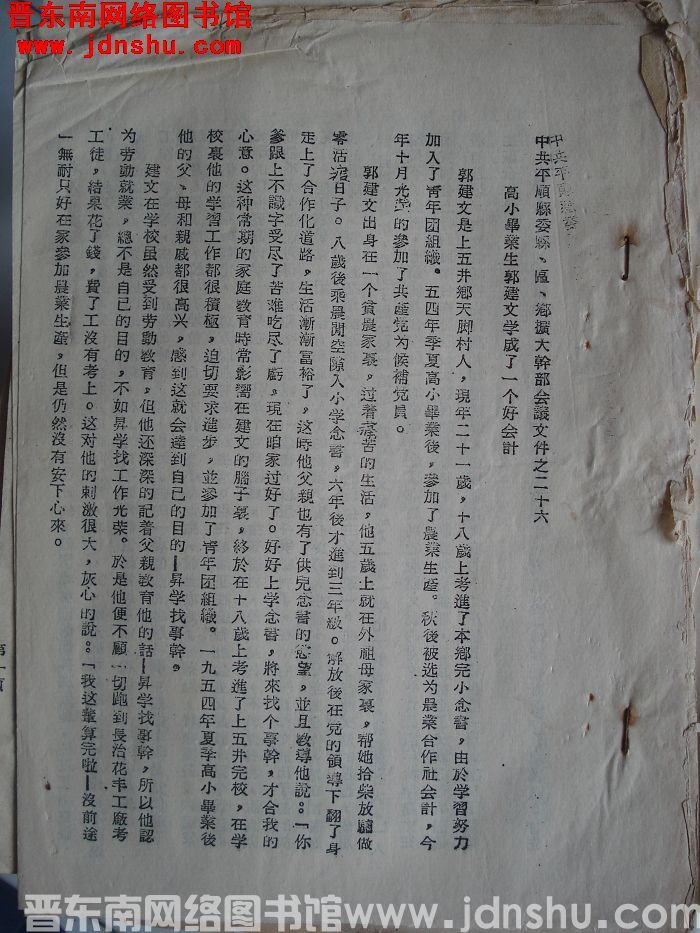 晋东南网络图书馆
www.jdnshu.com
中共平順縣委縣、區、鄉擴大幹部会議文件之二十六
高小畢業生郭建文学成了一个好会計
郭建文是上五井鄉天脚村人，現年二十一歲，十八歲上考進了本鄉完小念書，由於学習努力
加入了青年团組織。五四年季夏高小畢業後，參加了農業生產。秋後被选为農業合作社会計，今
年十月光荣的參加了共產党为候補党員。
郭建文出身在一个貧農家裏，过着苦的生活，他五歲上就在外祖母家裏，帮她拾柴放驢做
零活渡日子。八歲後乘晨閒空隙入小学念書，六年後才進到三年級。解放後在党的領導下翻了身
走上了合作化道路，生活漸漸富裕了，這時他父親也有了供兒念書的慾望，並且教導他說：「你
爹跟上不識字受尽了苦难吃尽了虧，現在咱家过好了。好好上学念書，將來找个事幹，才合我的
心意。这种常期的家庭教育時常影嚮在建文的腦子裏，終於在十八歲上考進了上五井完校，在学
校裏他的学習工作都很積極，迫切要求進步，並參加了青年团組織。一九五四年夏季高小畢業後
他的父、母和親戚都很高兴，感到这就会達到自己的目的—昇学找事幹。
建文在学校虽然受到劳動教育，但他还深深的記着父親教育他的話—昇学找事幹，所以他認
为劳動就業，總不是自己的目的，不如昇学找工作光荣。於是他便不顧一切跑到長治花丰工廠考
工徒，結果花了錢，費了工沒有考上。这对他的刺激很大，灰心的說：「我这輩算完啦—沒前途
一無耐只好在家參加農業生產，但是仍然沒有安下心來。
第一頁
晋东南网络图书馆www.jdnshu.com